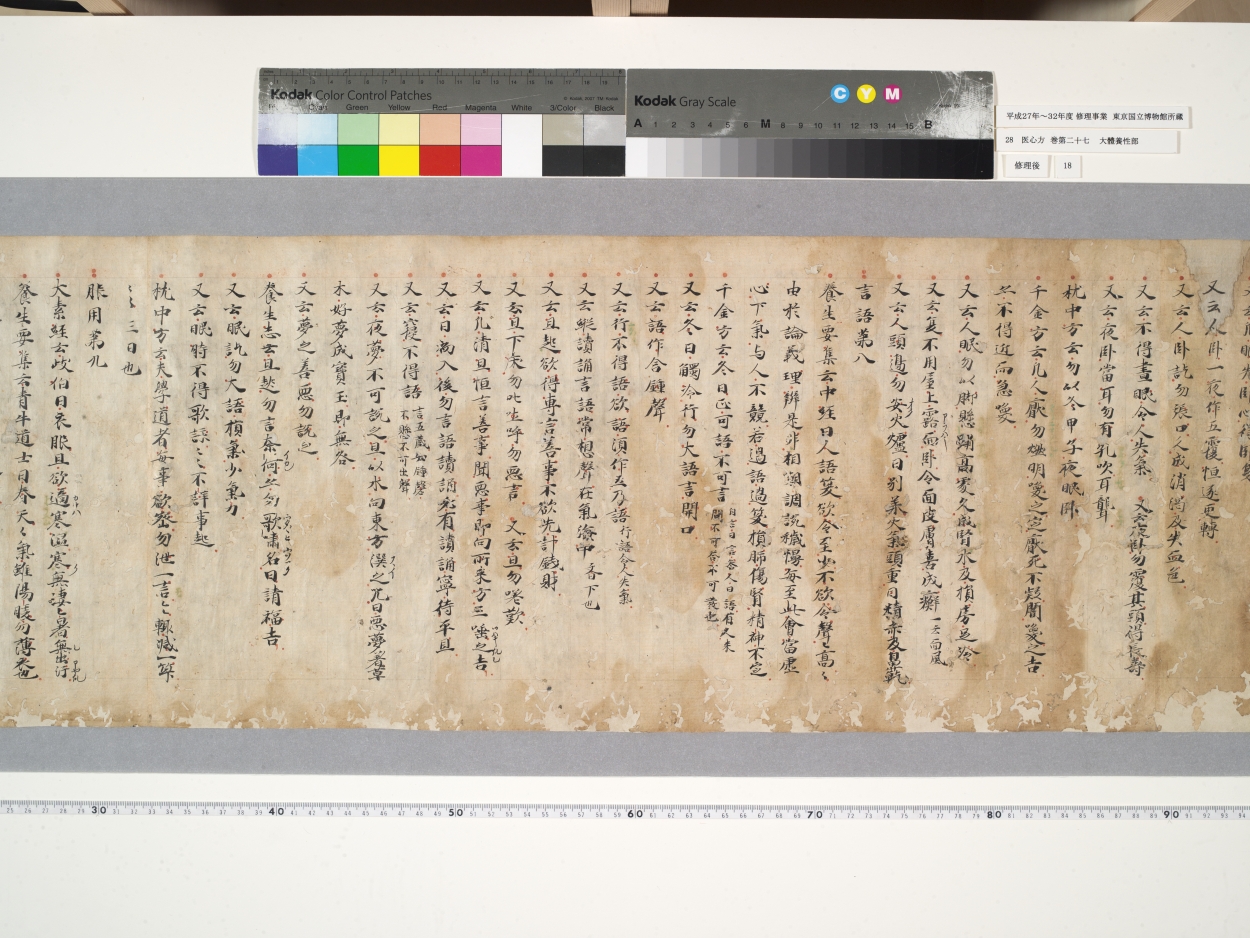 Kodak Color Control Patches
© Kodak, 2007 TM: Kodak
Cyan Green Yellow Red Magenta White 3/Color Black
Kodak Gray Scale
C Y M
A 1 2 3 4 5 6 M 8 9 10 11 12 13 14 15 B
平成27年~32年度 修理事業 東京国立博物館所蔵
28 医心方 巻第二十七 大體養性部
修理後 18
又云人卧一夜作五覆恒逐更轉
又云人卧訖勿張口久成消渇及失血色
又云不得晝眠令人失氣 又云夜卧勿覆其頭得長壽
又云夜卧當耳勿有孔吹耳聾
枕中方云勿以冬甲子夜眠卧
千金方云凡人厭勿燃明喚之定厭死不疑闇喚之吉
亦不得近而急喚
又云人眠勿以脚懸蹋高處久成腎水及損房足冷
又云夏不用屋上露面卧令面皮膚喜成癬 一云面風
又云人頭邊勿安火爐日別承火氣頭重目精赤及鼻乾
言語第八
養生要集云中經曰人語笑欲令至少不欲令聲々高々
由於論義理辨是非相嘲調説穢慢每至此會當虛
心下氣与人不競若過語過笑損肺傷腎精神不定
千金方云冬日正可語不可言 自言曰言答人曰語有人来問不可不答不可發也
又云冬日觸冷行勿大語言開口
又云語作含鍾聲
又云行不得語欲語須作立乃語 行語令人失氣
又云縱讀誦言語常想聲在氣海中 斉下也
又云旦起欲得專言善事不欲先計錢財
又云旦下床勿叱吐呼勿惡言 又云旦勿嗟歎
又云凡清旦恒言善事聞惡事即向所来方三唾之吉
又云日満入後勿言語讀誦必有讀誦寧待平旦
又云寢不得語 言五蔵如鍾磬不懸不可出聲
又云夜夢不可説之旦以水向東方潠之咒曰惡夢着草
木好夢成寶玉即無咎
又云夢之善惡勿説之
養生志云旦起勿言奈何亦勿歌嘯名曰請福吉
又云眠訖勿大語損氣少氣力
又云眠時不得歌詠々々不詳事起
枕中方云夫學道者每事欲密勿泄一言々輙減一筭
々々三日也
服用第九
大素經云岐伯曰衣服且欲適寒温寒無淒々暑無出汗
養生要集云青牛道士曰春天々氣雖陽暖勿薄衣也
30 40 50 60 70 80 90